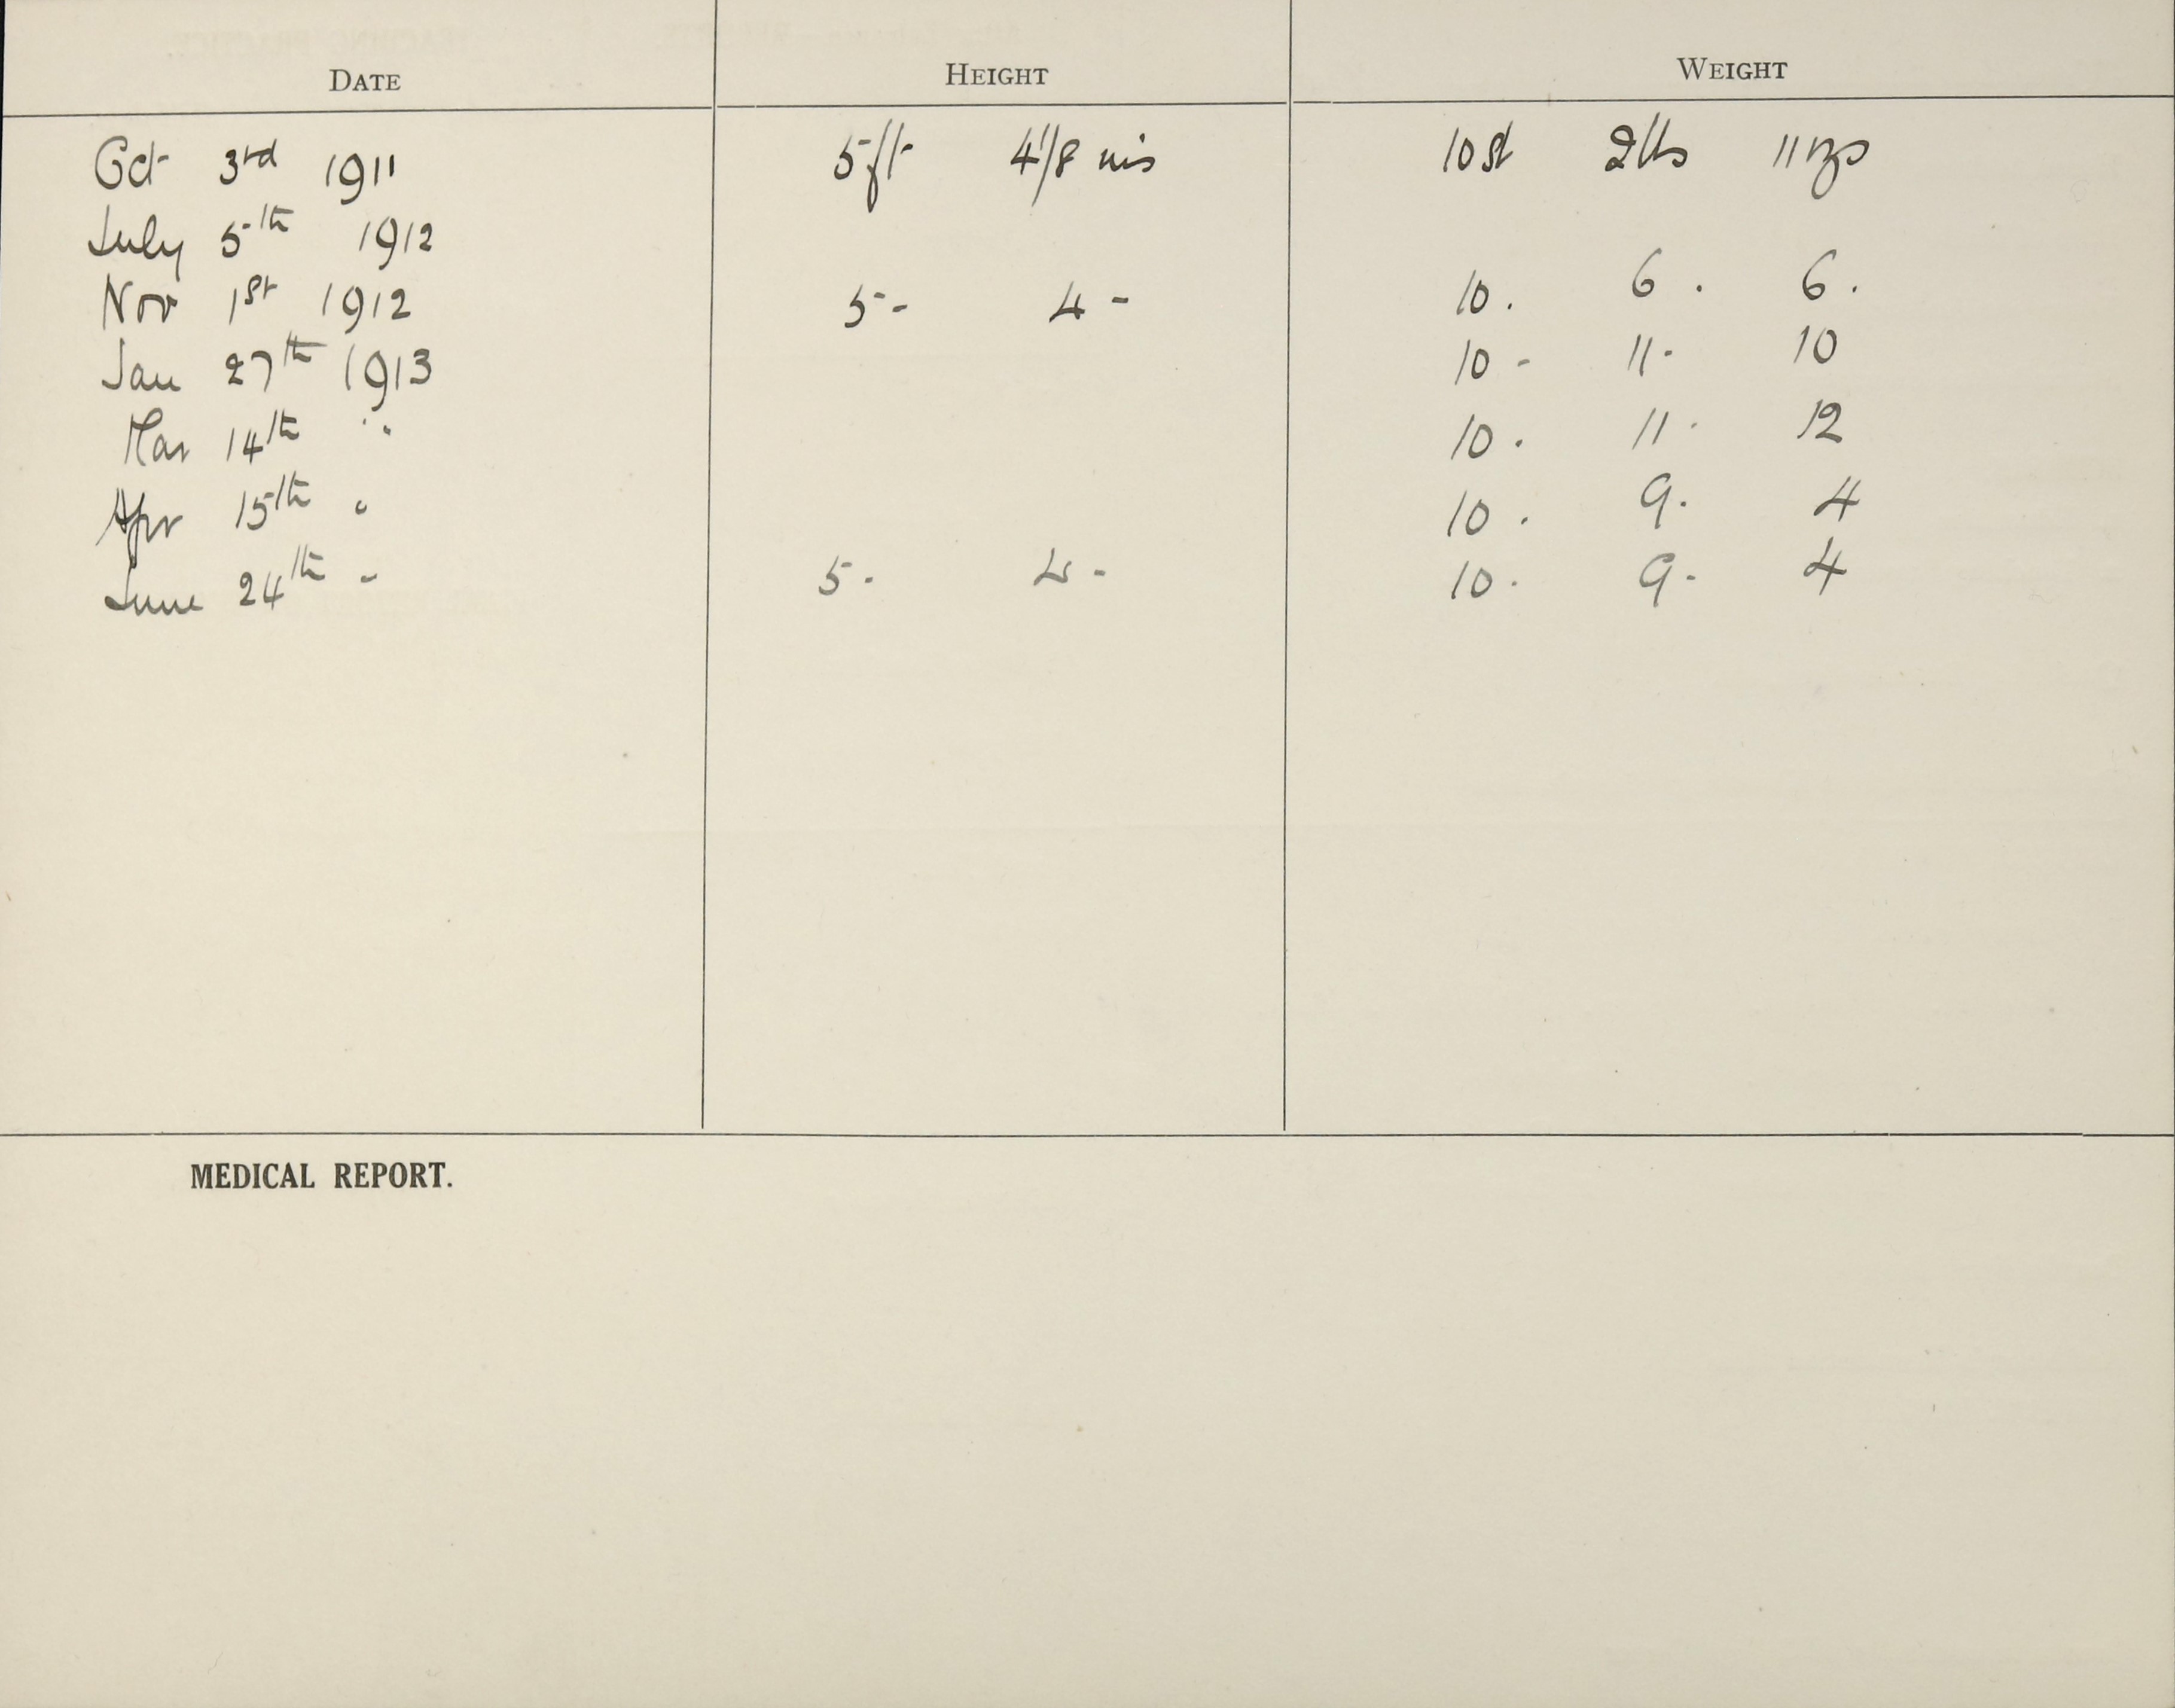 DATE HEIGHT WEIGHT
Oct 3rd 1911 5ft 4 1/8 ins 10st 2lbs 11ozs
July 5th 1912
Nov 1st 1912 5 - 4 - 10 . 6 . 6 .
Jan 27th 1913 10 - 11 - 10
Mar 14th " 10 . 11 . 12
Apr 15th " 10 . 9 . 4
June 24th " 5 . 4 - 10 . 9 - 4
MEDICAL REPORT.